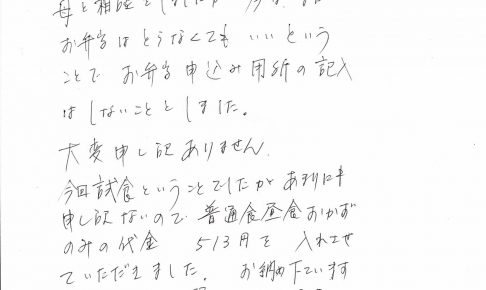 母と相談をしました
お弁当はとらなくてもいいという
ことで お弁当申込み用紙の記入
はしないこととしました。
大変申し訳ありません。
今回試食ということでしたが あまりにも
申し訳ないので 普通食昼食おかず
のみの代金 513円を 入れさせ
ていただきました。 お納め下さいます